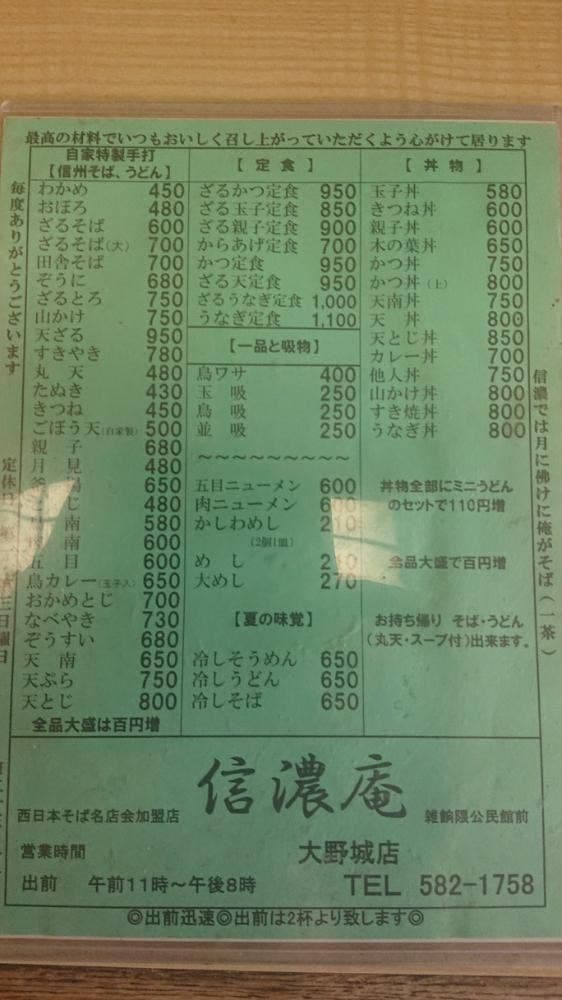 最高の材料でいつもおいしく召し上がっていただくよう心がけて居ります
毎度ありがとうございます
自家特製手打
【信州そば、うどん】
わかめ 450
おぼろ 480
ざるそば 600
ざるそば(大) 700
田舎そば 700
ぞうに 680
ざるとろ 750
山かけ 750
天ざる 950
すきやき 780
丸天 480
たぬき 430
きつね 450
ごぼう天(自家製) 500
親子 680
月見 480
650
とじ 480
南 580
南 600
五目 600
鳥カレー(玉子入) 650
おかめとじ 700
なべやき 730
ぞうすい 680
天南 650
天ぷら 750
天とじ 800
全品大盛は百円増
【定食】
ざるかつ定食 950
ざる玉子定食 850
ざる親子定食 900
からあげ定食 700
かつ定食 950
ざる天定食 950
ざるうなぎ定食 1,000
うなぎ定食 1,100
【一品と吸物】
鳥ワサ 400
玉吸 250
鳥吸 250
並吸 250
~~~~~~~~~
五目ニューメン 600
肉ニューメン 600
かしわめし 210
(2個1皿)
めし 210
大めし 270
【夏の味覚】
冷しそうめん 650
冷しうどん 650
冷しそば 650
【丼物】
玉子丼 580
きつね丼 600
親子丼 600
木の葉丼 650
かつ丼 750
かつ丼(上) 800
天南丼 750
天丼 800
天とじ丼 850
カレー丼 700
他人丼 750
山かけ丼 800
すき焼丼 800
うなぎ丼 800
丼物全部にミニうどん
のセットで110円増
全品大盛で百円増
お持ち帰り そば・うどん
(丸天・スープ付)出来ます。
信濃では月に佛けに俺がそば(一茶)
定休日
三日曜日
信濃庵
西日本そば名店会加盟店
雑餉隈公民館前
営業時間
大野城店
出前 午前11時~午後8時
TEL 582-1758
◎出前迅速◎出前は2杯より致します◎